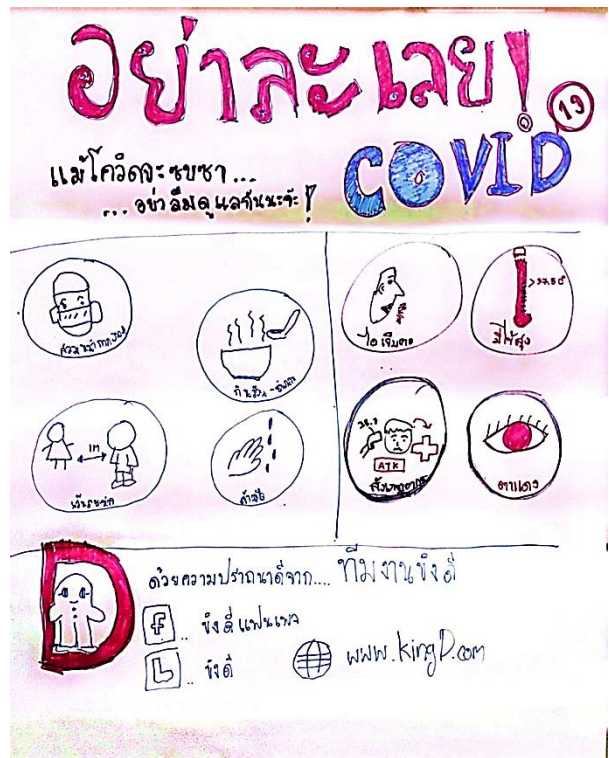 อย่าละเลย!
COVID 19
แม้โควิดจะซบซา...
... อย่าลืมดูแลกันนะจ๊ะ!
สวมหน้ากากอนามัย
กินร้อน - ช้อนกลาง
1M
เว้นระยะห่าง
ล้างมือ
ไอ เจ็บคอ
>37.5 C
มีไข้สูง
ATK
สังเกตอาการ
ตาแดง
D
ด้วยความปรารถนาดีจาก.... ทีมงานขิงดี
f .. ขิงดีแฟนเพจ
.. ขิงดี
www.kingD.com